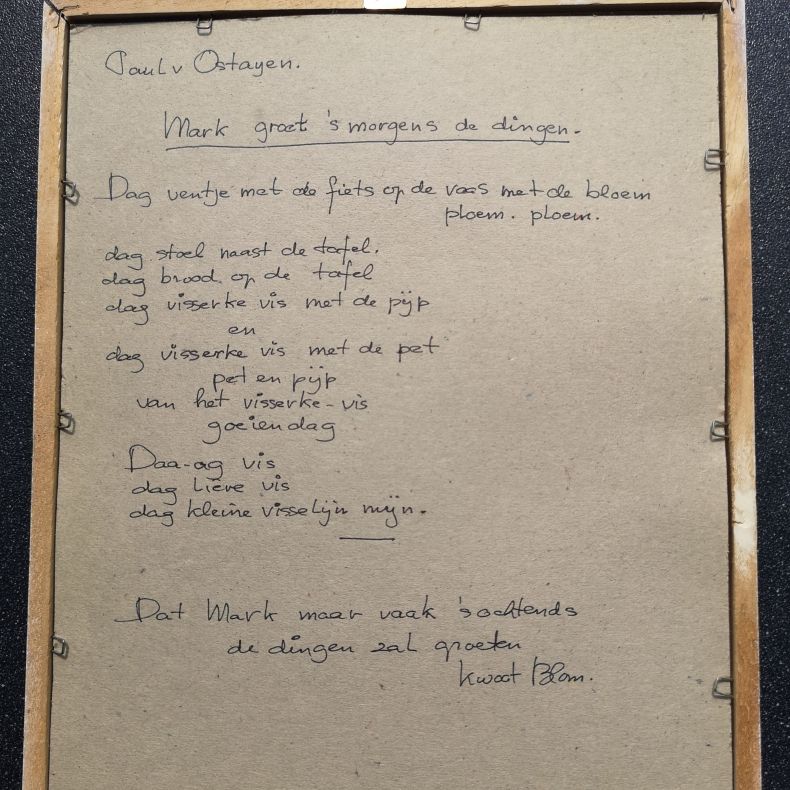 Paul v Ostayen.
Mark groet 's morgens de dingen.
Dag ventje met de fiets op de vaas met de bloem
ploem. ploem.
dag stoel naast de tafel.
dag brood op de tafel
dag visserke vis met de pijp
en
dag visserke vis met de pet
pet en pijp
van het visserke-vis
goeiendag
Daa-ag vis
dag lieve vis
dag kleine visselijn mijn.
Dat Mark maar vaak 's ochtends
de dingen zal groeten
Blom.